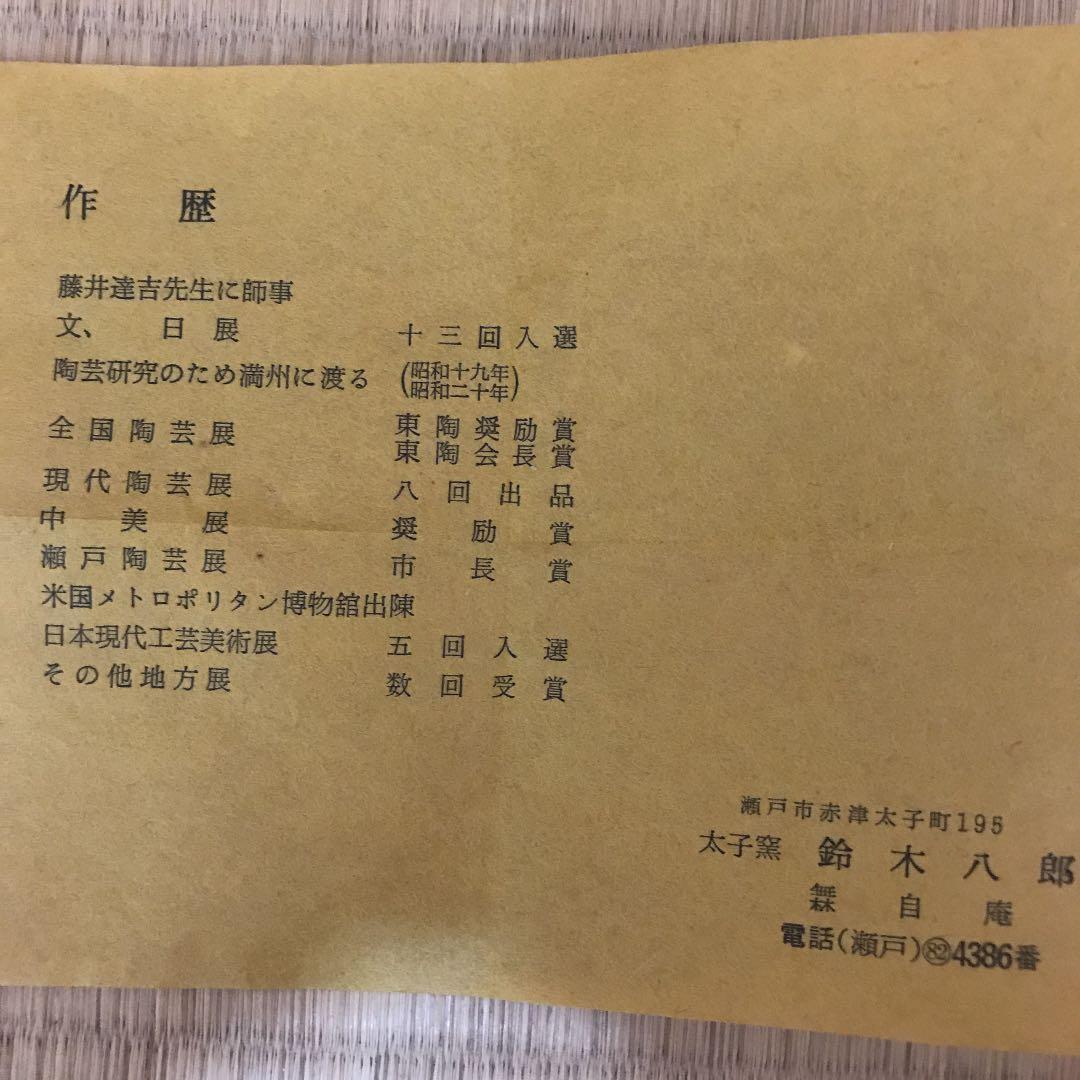 作 歴
藤井達吉先生に師事
文、 日展 十三回入選
陶芸研究のため満州に渡る (昭和十九年
昭和二十年)
全国陶芸展 東陶奨励賞
東陶会長賞
現代陶芸展 八回出品
中美展 奨励賞
瀬戸陶芸展 市長賞
米国メトロポリタン博物舘出陳
日本現代工芸美術展 五回入選
その他地方展 数回受賞
瀬戸市赤津太子町195
太子窯 鈴木八郎
自庵
電話(瀬戸)㊷4386番